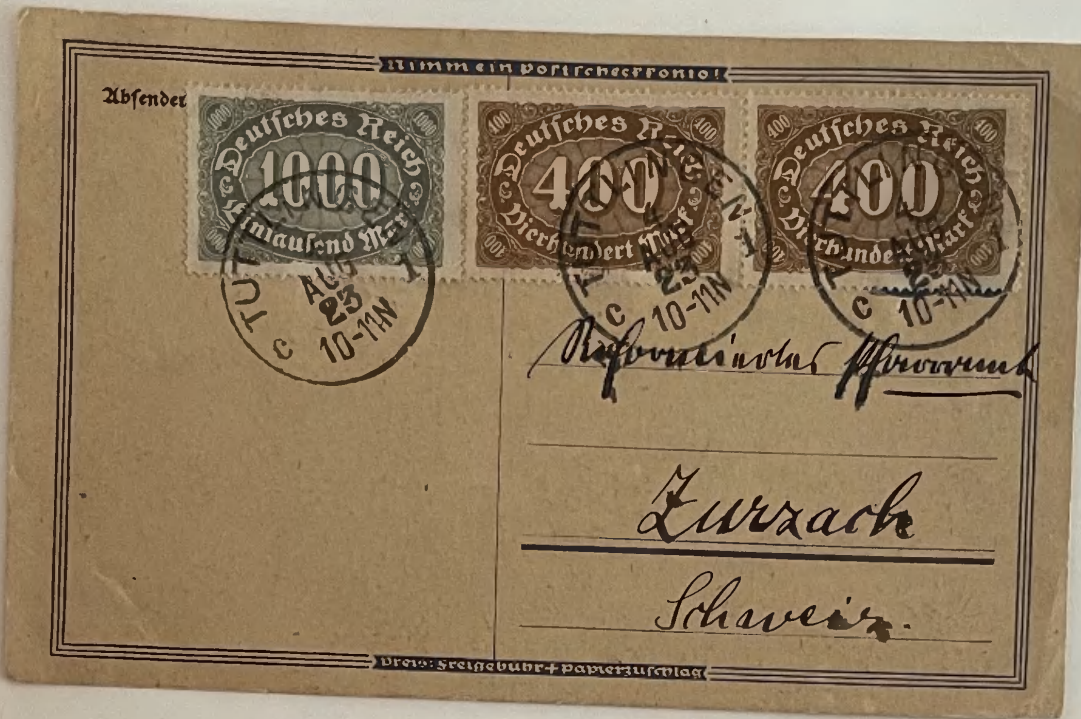 Nimm ein Postscheckkonto!
Absender
1000 1000
Deutsches Reich
1000
Eintausend Mark
400 400
Deutsches Reich
400
Vierhundert Mark
400 400
400 400
Deutsches Reich
400
Vierhundert Mark
400 400
TUTTLINGEN
AUG
23
10-11N
C 1
TUTTLINGEN
4
AUG
23
10-11N
C 1
TUTTLINGEN
4
AUG
23
10-11N
C 1
Reformiertes Pfarramt
Zurzach
Schweiz.
Preis: Freigebühr + Papierzuschlag